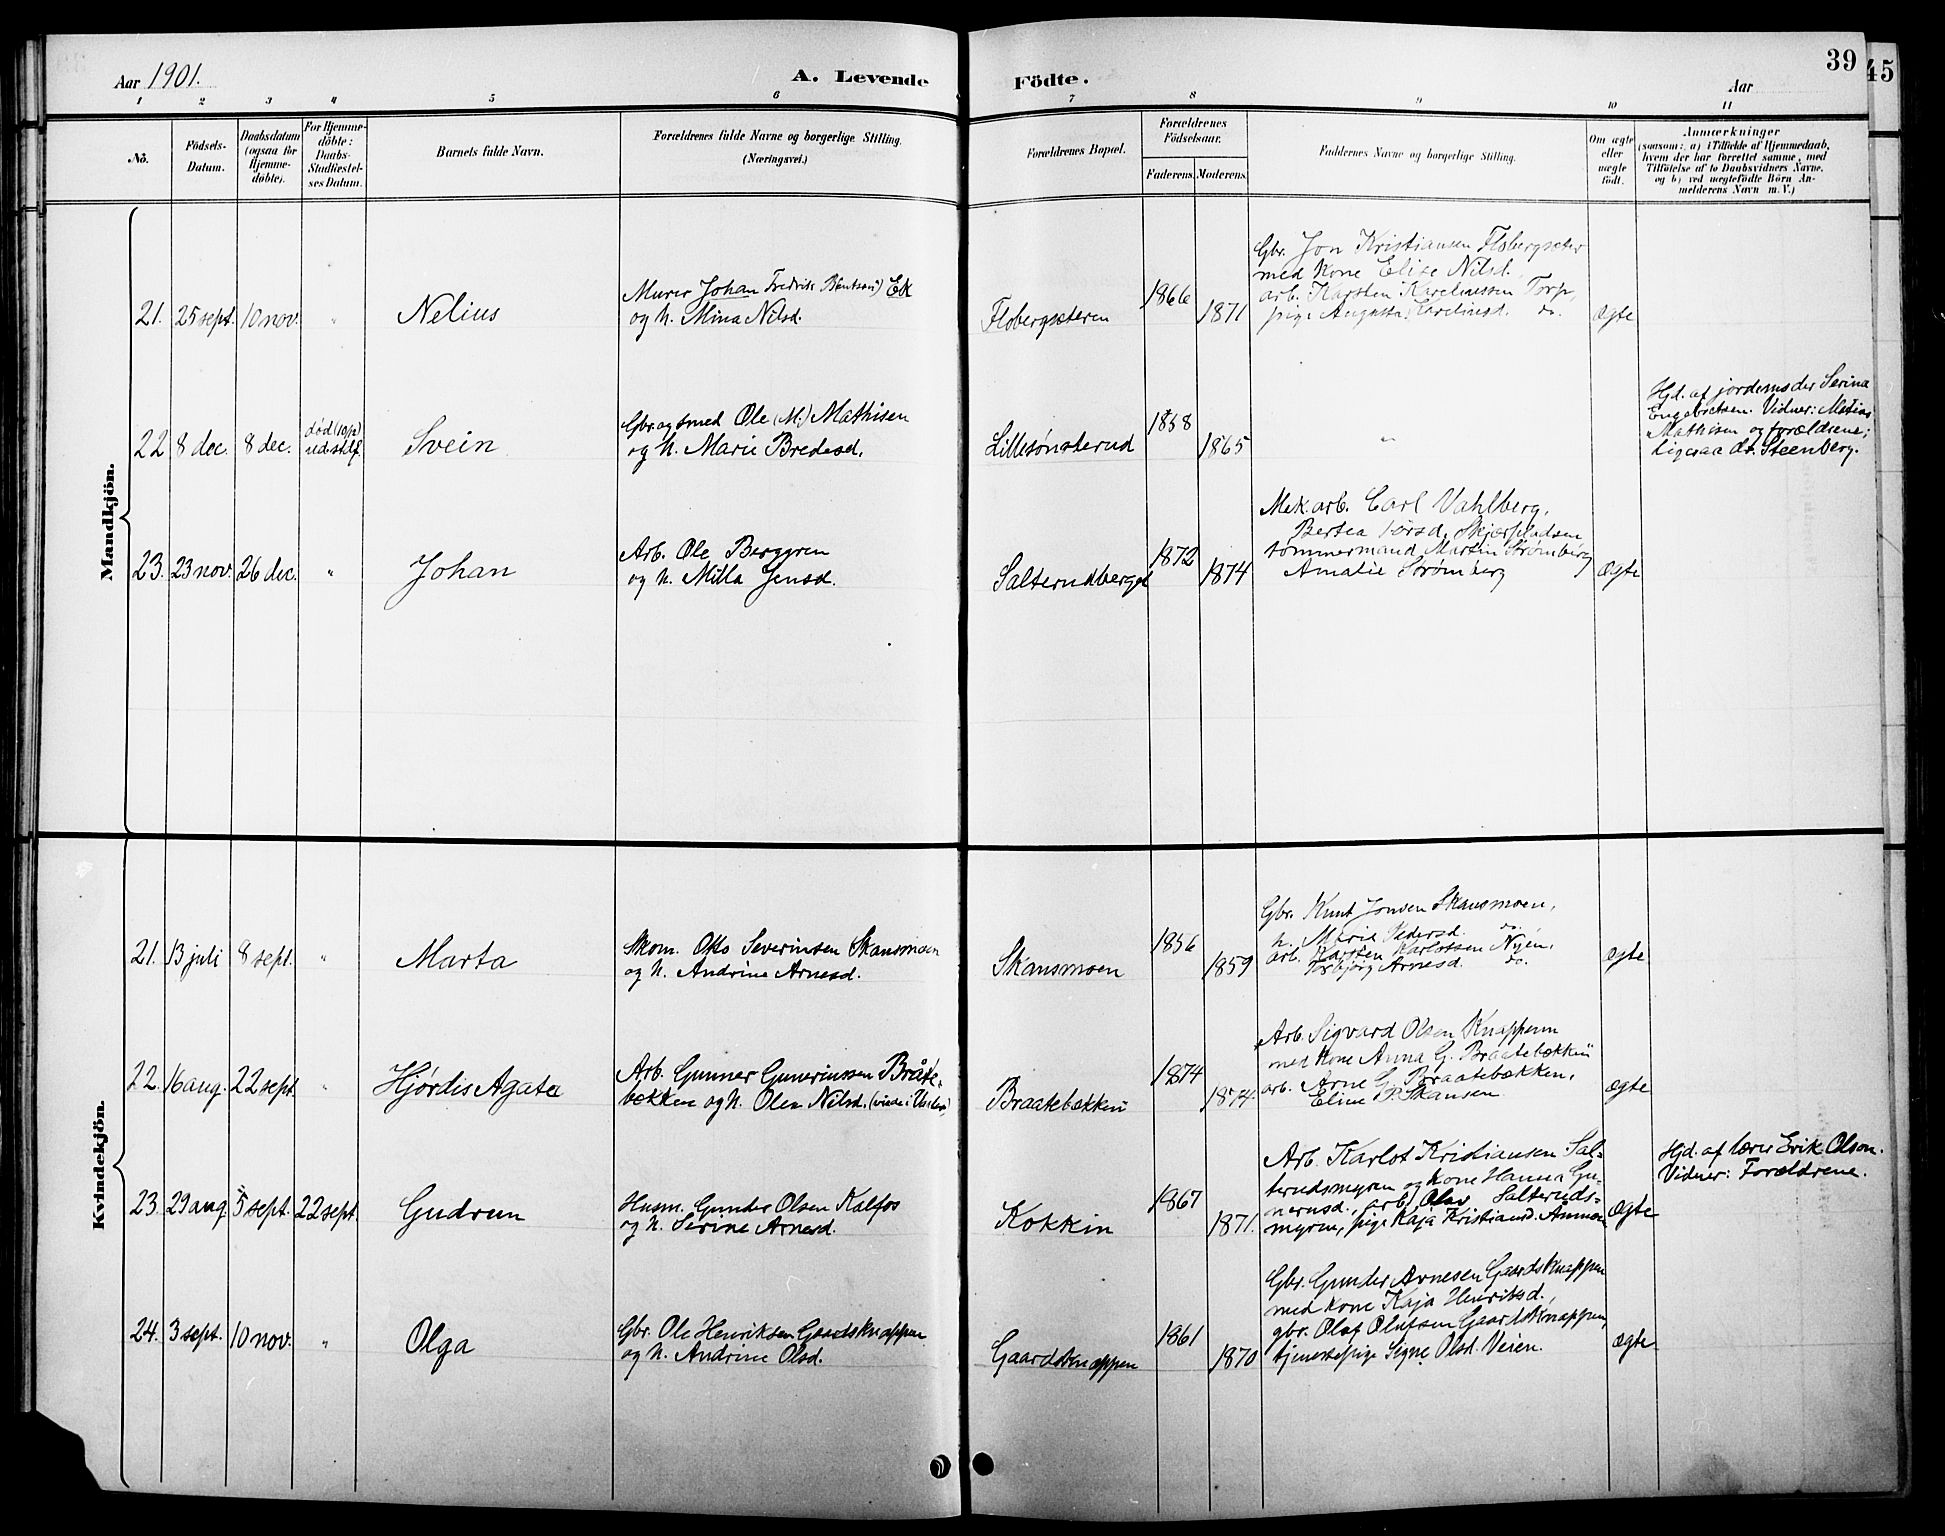 Aar 1901.
A. Levende Födte.
Aar
39
45
1 2 3 4 5 6 7 8 9 10 11
No.
Födsels-Datum.
Daabsdatum (ogsaa for Hjemme-döbte).
For Hjemme-döbte: Daabs-Stadfæstel-ses Datum.
Barnets fulde Navn.
Forældrenes fulde Navne og borgerlige Stilling.
(Næringsvei.)
Forældrenes Bopæl.
Forældrenes Födselsaar.
Faderens. Moderens.
Faddernes Navne og borgerlige Stilling.
Om ægte eller uægte födt.
Anmærkninger
(saasom: a) i Tilfælde af Hjemmedaab,
hvem der har forrettet samme, med
Tilföielse af to Daabsvidners Navne,
og b) ved uægtefödte Börn An-
melderens Navn m. V.)
Mandkjön.
21. 25 sept. 10 nov. " Nelius
Murer Johan Fredrik Bentsen) Ek
og h. Mina Nilsd.
Flobergsæteren
1866
1871
Gbr. Jon Kristiansen Flobergsæter
med kone Elise Nilsd.
arb. Karsten Karelinssen Torp,
pige Augusta Karelinsd. do.
ægte
22 8 dec. 8 dec. død (10/12) Svein
Gbr. og smed Ole (M.) Mathisen
og h. Marie Bredesd.
Lillesønsterud
1858
1865
"
Hjd. af jordemoder Serina
Engebretsen. Vidner: Matias
Mathisen og forældrene;
ligesaa dr. Steenberg.
23. 23 nov. 26 dec. " Johan
Arb. Ole Berggren
og h. Milla Jensd.
Salterudberget
1872
1874
Mek. arb. Carl Vahlberg,
Bertea Skjærpladsen
tømmermand Martin Strømberg
Amalie Strømberg
ægte
Kvindekjön.
21. 13 juli 8 sept. " Marta
Skom. Otto Severinsen Skansmoen
og h. Andrine Arnesd.
Skansmoen
1856
1859
Gbr. Knut Jonsen Skansmoen,
h. Marie Pedersd. do.
arb. Karsten Karlotssen Nyen,
Torbjørg Arnesd. do.
ægte
22. 16 aug. 22 sept. " Hjørdis Agate
Arb. Gunner Gunerinssen Bråte-
bækken og h. Olea Nilsd.
Braatebækken
1874
1874.
Arb. Sigvard Olsen Knappen
med kone Anna G. Braatebækken
arb. Arne G. Braatebækken,
Eline P. Skansen
ægte
23. 29 aug. 5 sept. 22 sept. Gudrun
Husm. Gunder Olsen Kalfos
og h. Serine Arnesd.
Kokkin
1867
1871.
Arb. Karlot Kristiansen Sal-
terudsmyren og kone Hanna Gu-
nerusd., arb. Olav Salteruds-
myren, pige Kaja Kristiansd.
ægte
Hjd. af lærer Erik Olson.
Vidner: Forældrene.
24. 3 sept. 10 nov. " Olga
Gbr. Ole Henriksen Gaardsknappen
og h. Andrine Olsd.
Gaardsknappen
1861
1870
Gbr. Gunder Arnesen Gaardsknappen
med kone Kaja Henriksd.,
gbr. Olaf Olufsen Gaardsknappen,
tjenestepige Signe Olsd. Veien.
ægte